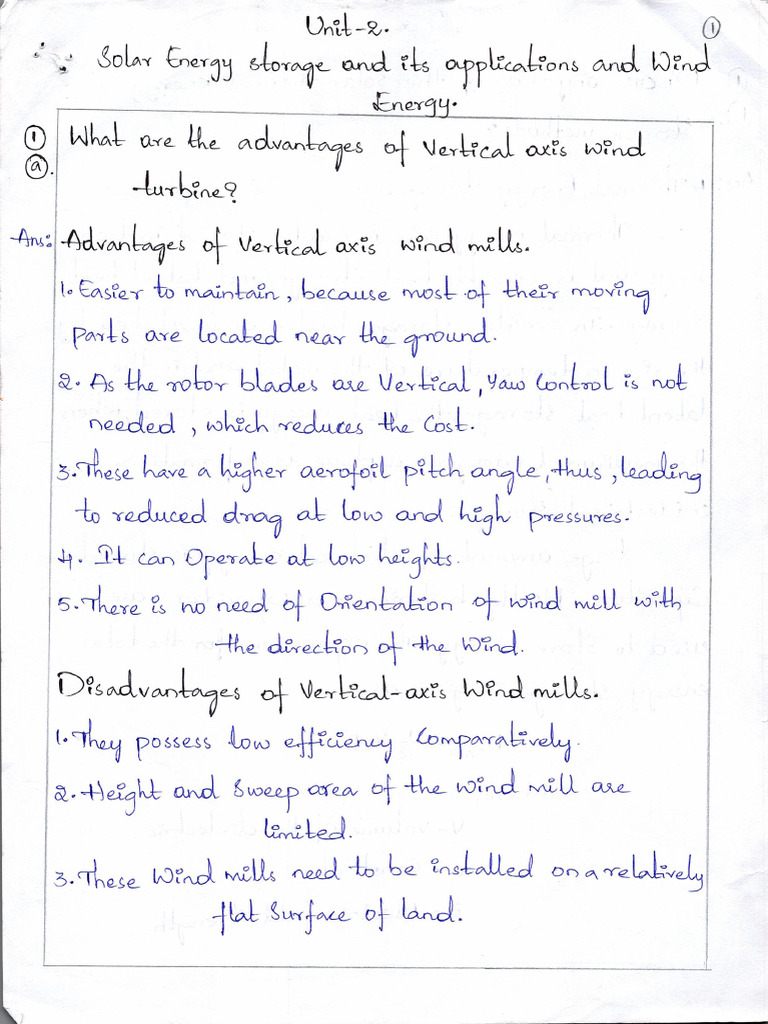 Unit-2.
1
Solar Energy storage and its applications and Wind
Energy.
1 What are the advantages of Vertical axis wind
a. turbine?
Ans: Advantages of Vertical axis wind mills.
1. Easier to maintain, because most of their moving
parts are located near the ground.
2. As the rotor blades are Vertical, Yaw Control is not
needed, which reduces the Cost.
3. These have a higher aerofoil pitch angle, thus, leading
to reduced drag at low and high pressures.
4. It can Operate at low heights.
5. There is no need of Orientation of wind mill with
the direction of the Wind.
Disadvantages of Vertical-axis Wind mills.
1. They possess low efficiency Comparatively.
2. Height and Sweep area of the wind mill are
limited.
3. These Wind mills need to be installed on a relatively
flat Surface of land.